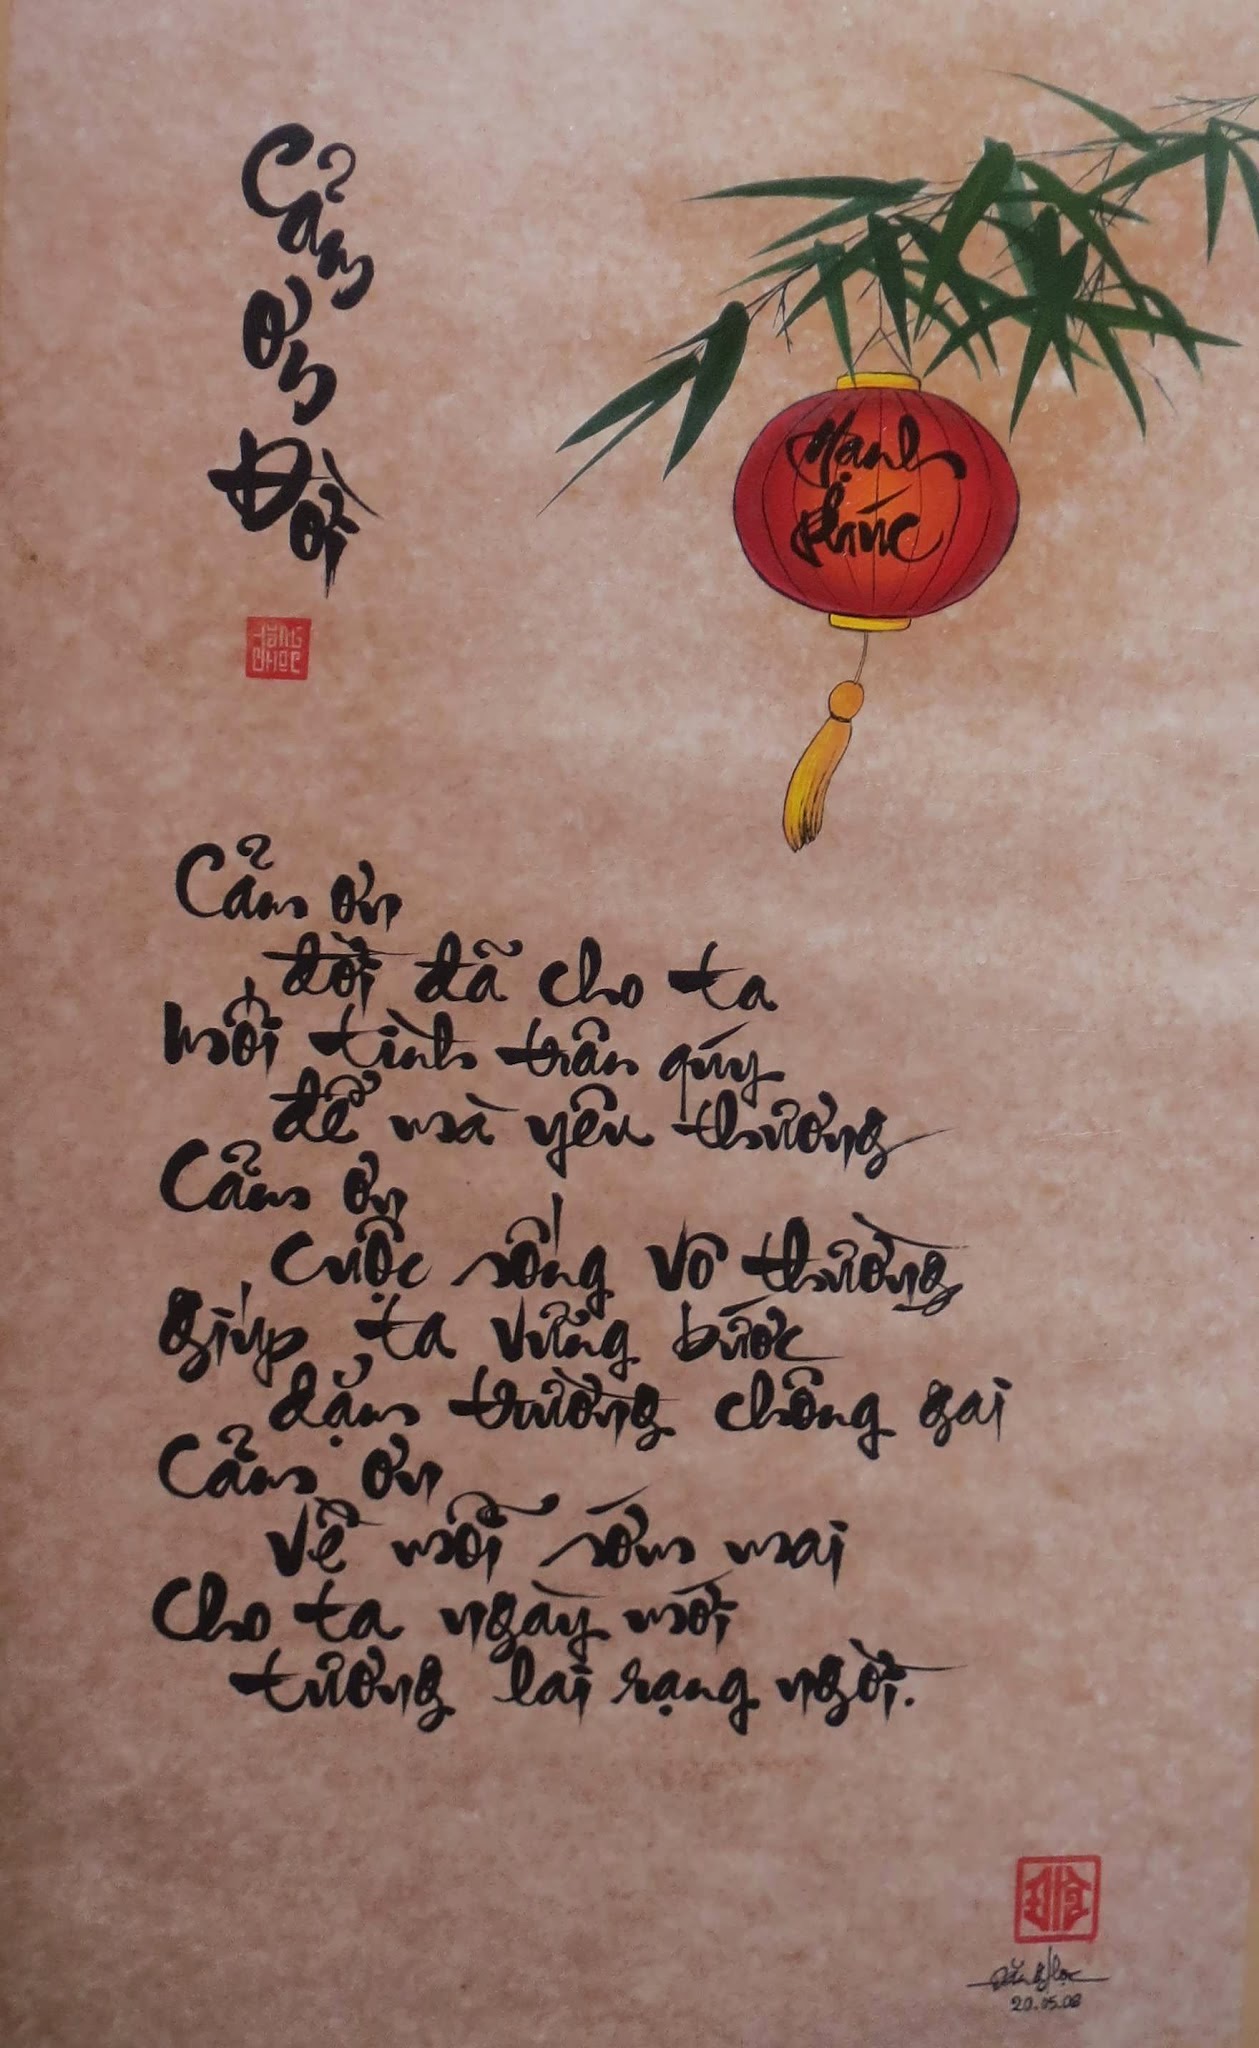 Cảm
ơn
Đời
Hạnh
phúc
ĐĂNG
HỌC
Cảm ơn
đời đã cho ta
mối tình trân quý
để mà yêu thương
Cảm ơn
cuộc sống vô thường
giúp ta vững bước
dặm trường chông gai
Cảm ơn
về mỗi sớm mai
Cho ta ngày mới
tương lai rạng ngời.
Đăng Học
20.05.08